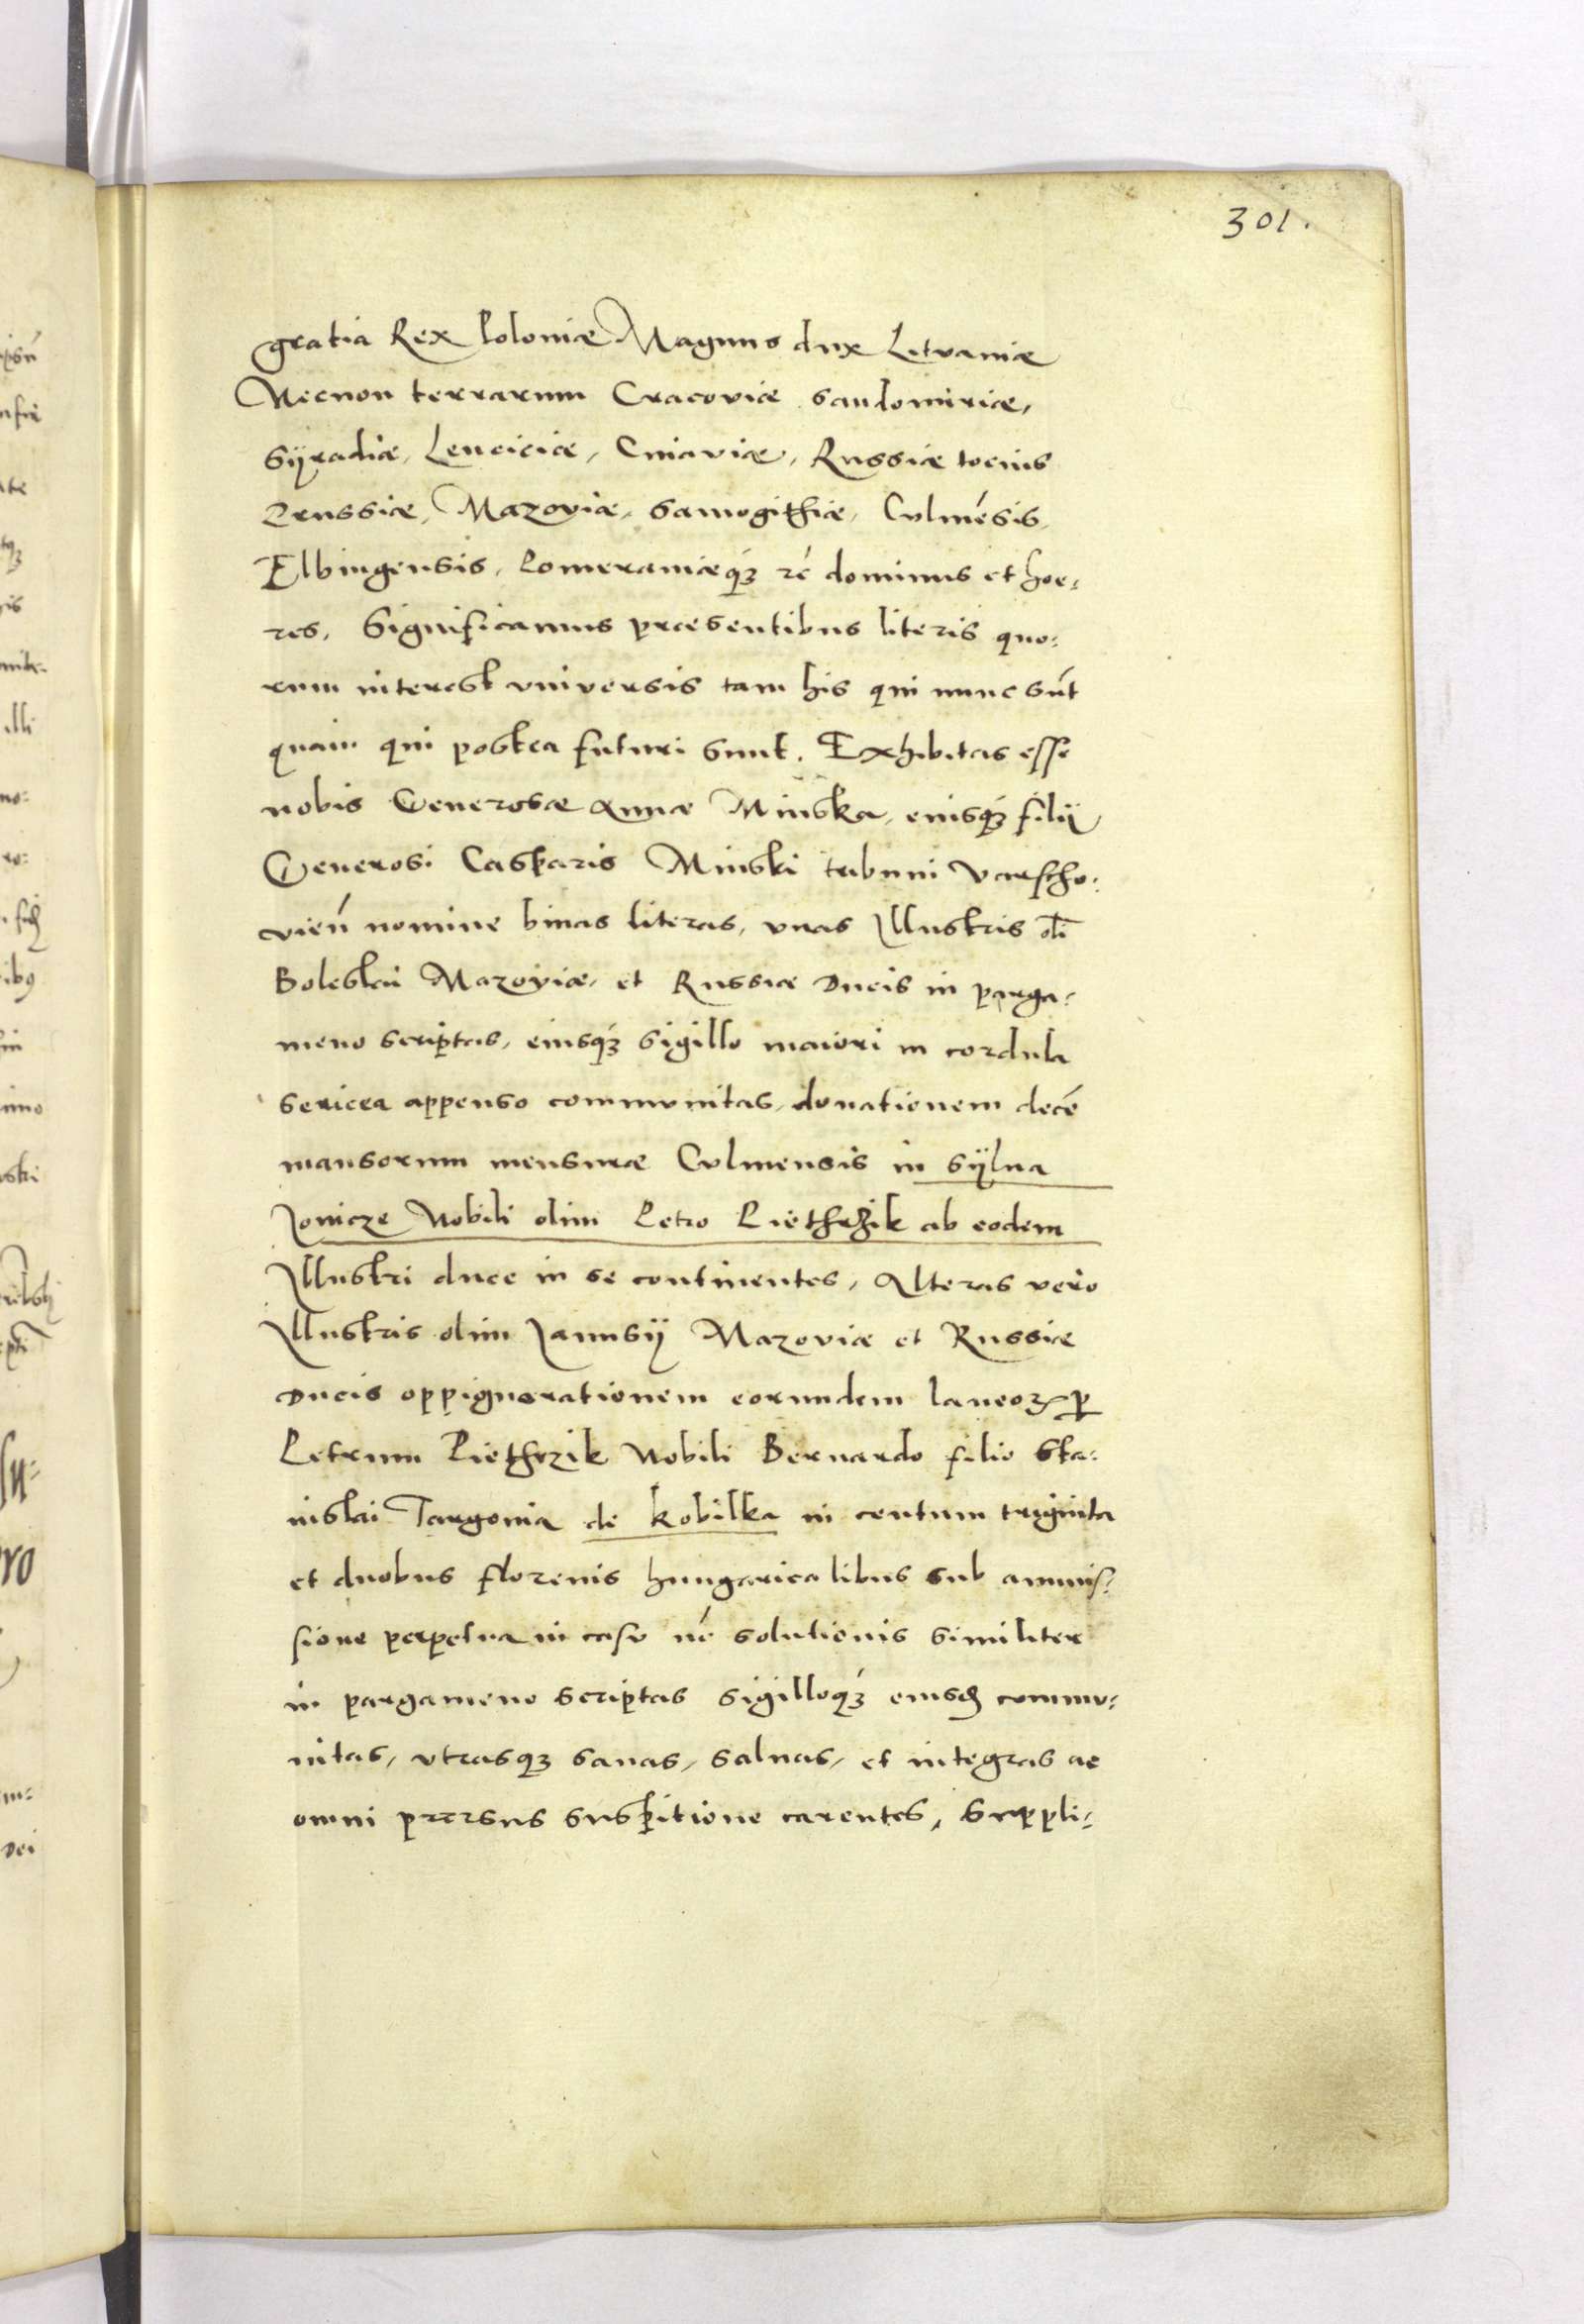 301.
gratia Rex Poloniæ Magnus dux Lituaniæ
Necnon terrarum Cracoviæ Sandomiriæ,
Sÿradiæ, Lenciciæ, Cuiaviæ, Russiæ tocius
Prussiæ, Mazoviæ, Samogithiæ, Culmēsis,
Elbingensis, Pomeraniæq₃ rē dominus et hoe:
res, Significamus præsentibus literis quo:
rum interest vniversis tam his qui nunc sūt
quam qui postea futuri sunt. Exhibitas esse
nobis Generosæ Annæ Minska, eiusq₃ filÿ
Generosi Casparis Minski tribuni Varscho:
vieñ nomine binas literas, vnas Illustris oli̅
Boleslai Mazoviæ, et Russiæ Ducis in parga:
meno scriptas, eiusq₃ sigillo maiori in cordula
sericea appenso communitas, donationem decē
mansorum mensuræ Culmensis in sÿlua
Jonicze Nobili olim Petro Piethrzik ab eodem
Illustri duce in se continentes, Alteras vero
Illustris olim Janusÿ Mazoviæ et Russiæ
Ducis oppignorationem eorundem laneoꝝ ꝑ
Petrum Piethrzik Nobili Bernardo filio Sta:
nislai Targonia de Kobilka in centum triginta
et duobus florenis hungaricalibus sub ammis:
sione perpetua in casu nō solutionis similiter
in pargameno scriptas sigilloq₃ eiusđ commu:
nitas, vtrasq₃ sanas, saluas, et integras ac
omni prorsus suspitione carentes, Suppli: